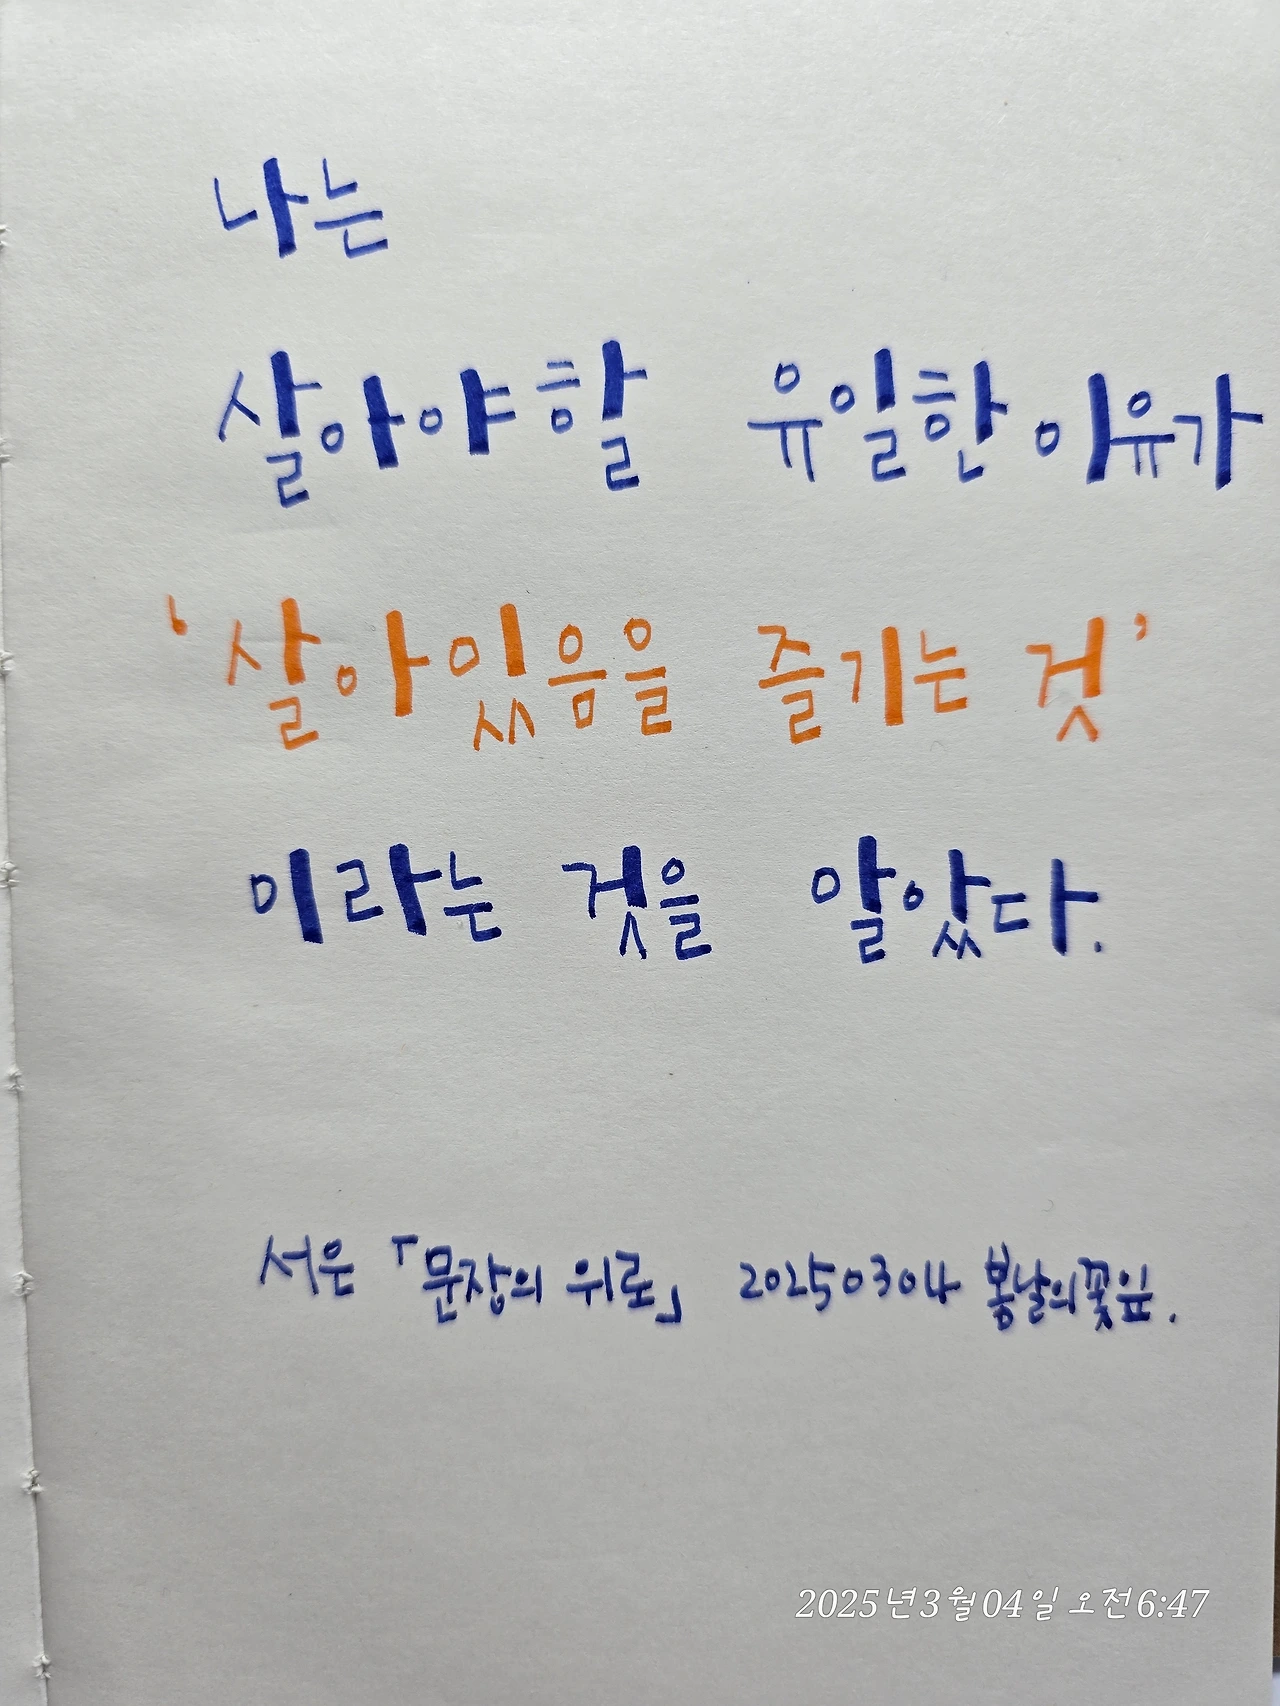 나는
살아야할 유일한 이유가
'살아있음을 즐기는 것'
이라는 것을 알았다.
서은 「문장의 위로」 20250304 봄날의꽃잎.
2025년3월04일 오전6:47